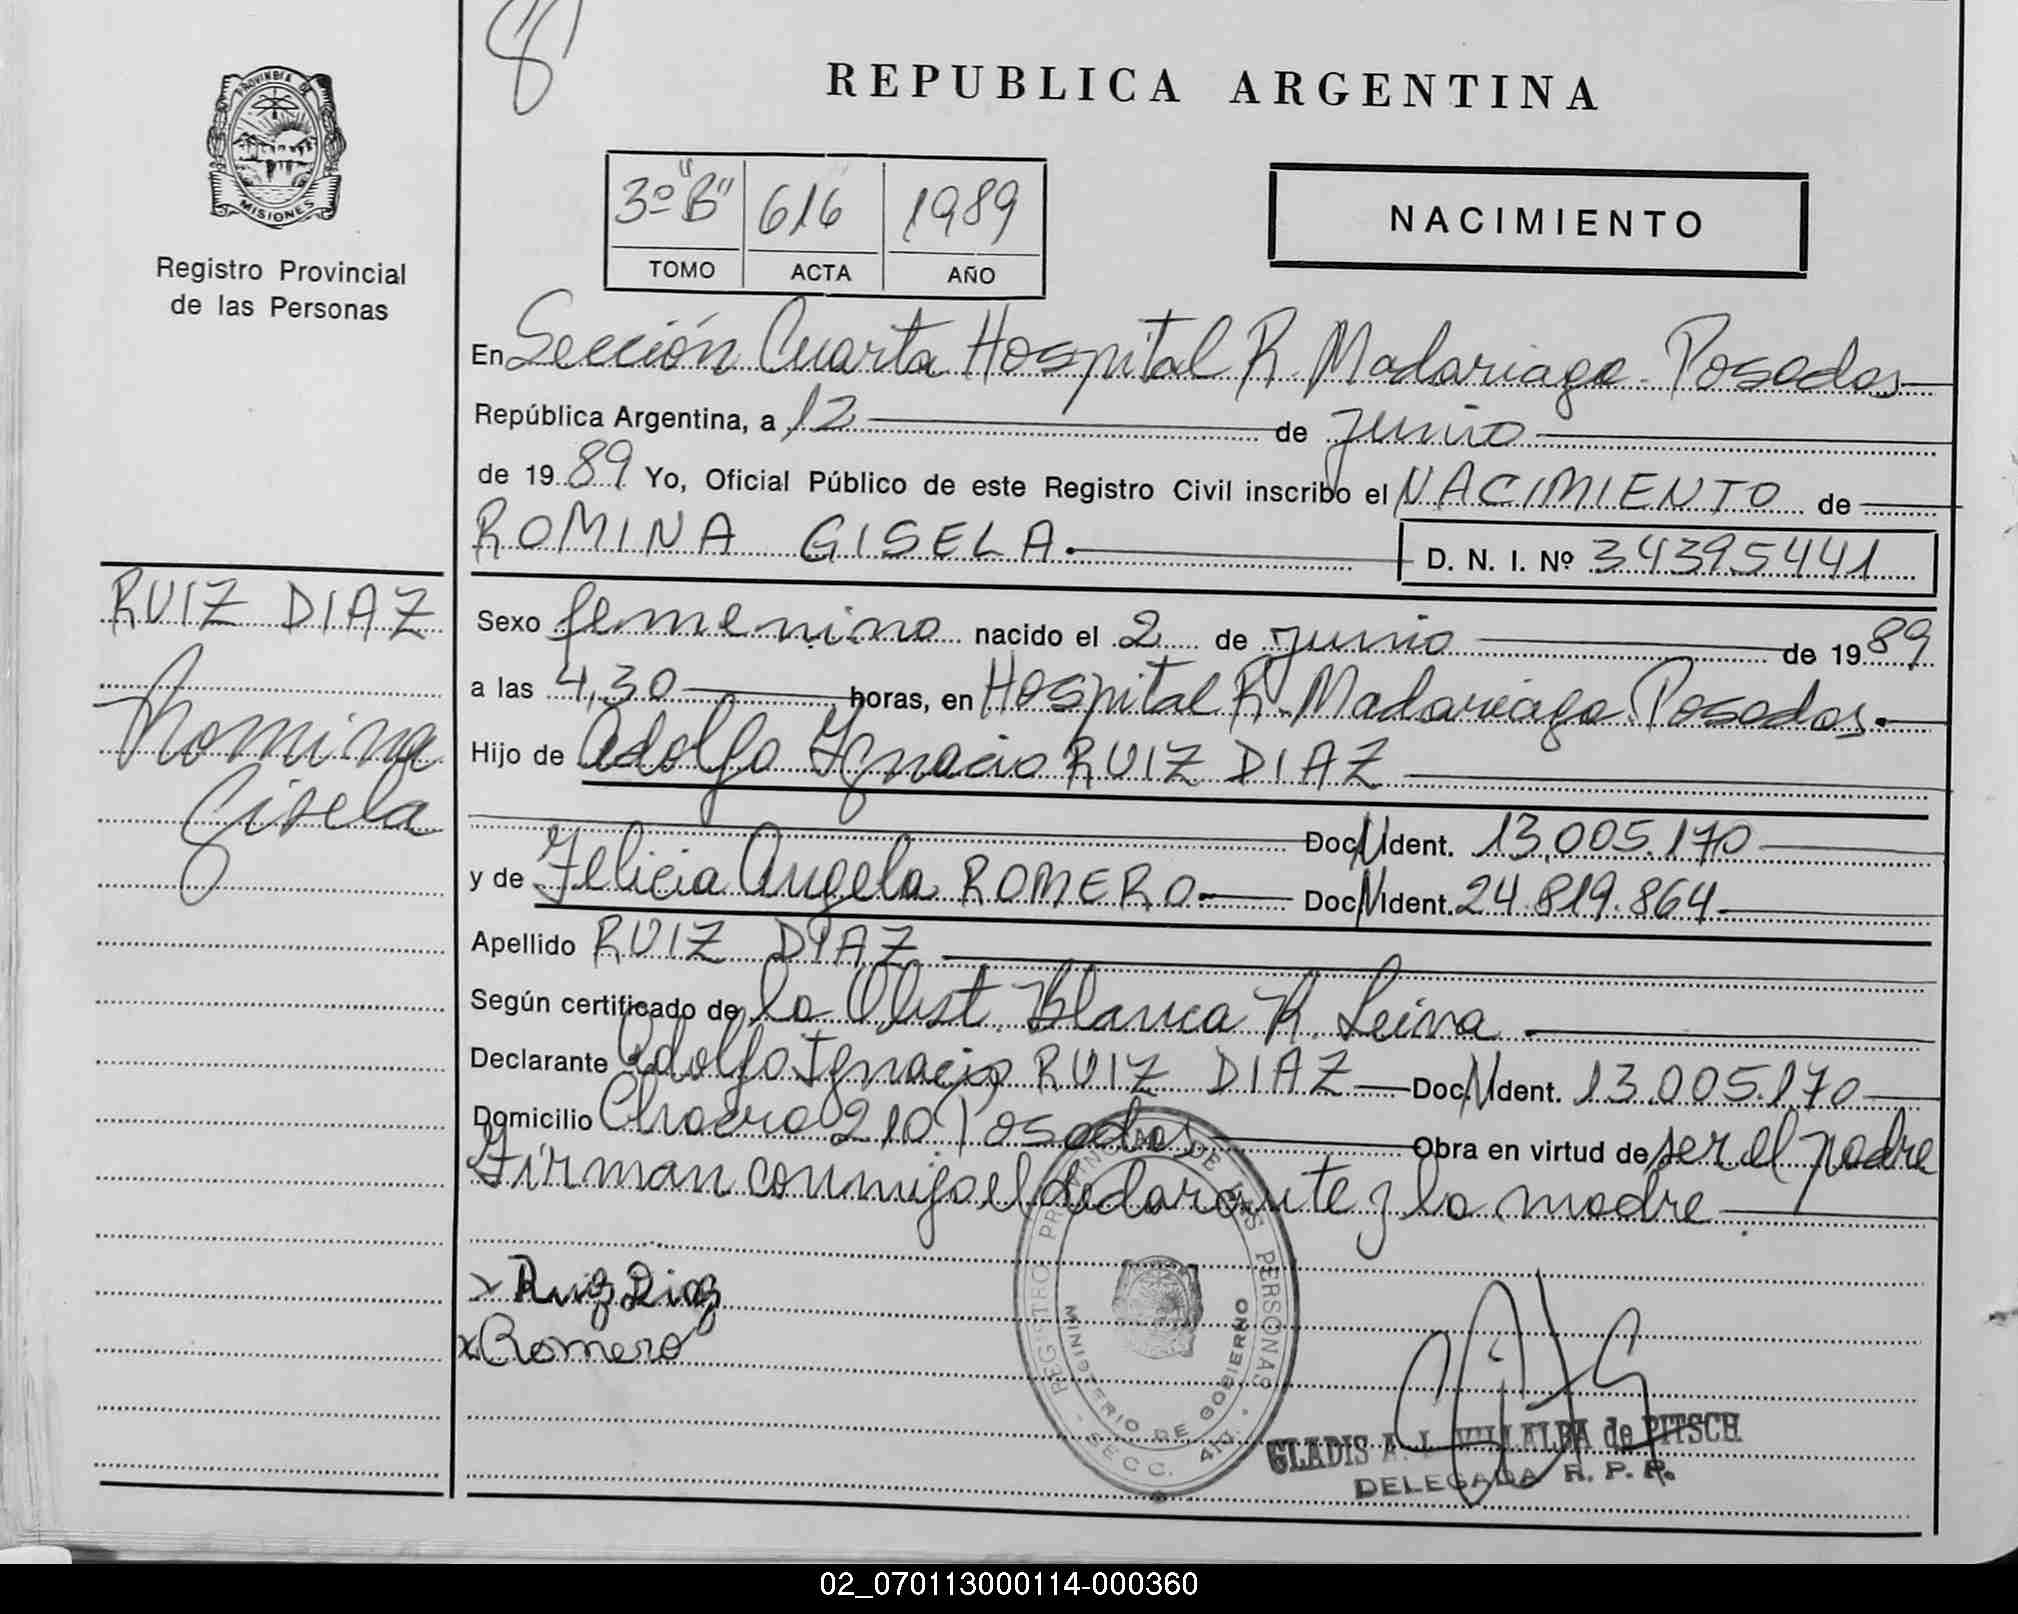 8
PROVINCIA DE
MISIONES
Registro Provincial
de las Personas
REPUBLICA ARGENTINA
3º "B" 616 1989
TOMO ACTA AÑO
NACIMIENTO
En Sección Cuarta Hospital R. Madariaga. Posadas
República Argentina, a 12 de junio
de 1989 Yo, Oficial Público de este Registro Civil inscribo el NACIMIENTO de
ROMINA GISELA.
D. N. I. Nº 34395441
RUIZ DIAZ
Romina
Gisela
Sexo femenino nacido el 2 de junio de 1989
a las 4,30 horas, en Hospital R. Madariaga. Posadas.
Hijo de Adolfo Ignacio RUIZ DIAZ
Doc. N Ident. 13.005.170
y de Felicia Angela ROMERO. Doc. N Ident. 24.819.864
Apellido RUIZ DIAZ
Según certificado de la Obst. Blanca K. Leiva
Declarante Adolfo Ignacio RUIZ DIAZ Doc. N Ident. 13.005.170
Domicilio Chacra 210 Posadas Obra en virtud de ser el padre
Firman conmigo el declarante y la madre
x Ruiz Diaz
x Romero
REGISTRO PROVINCIAL DE LAS PERSONAS
MINISTERIO DE GOBIERNO
SECC. 4ta.
GLADIS A. L. VILLALBA de PITSCH
DELEGADA R. P. P.
02_070113000114-000360